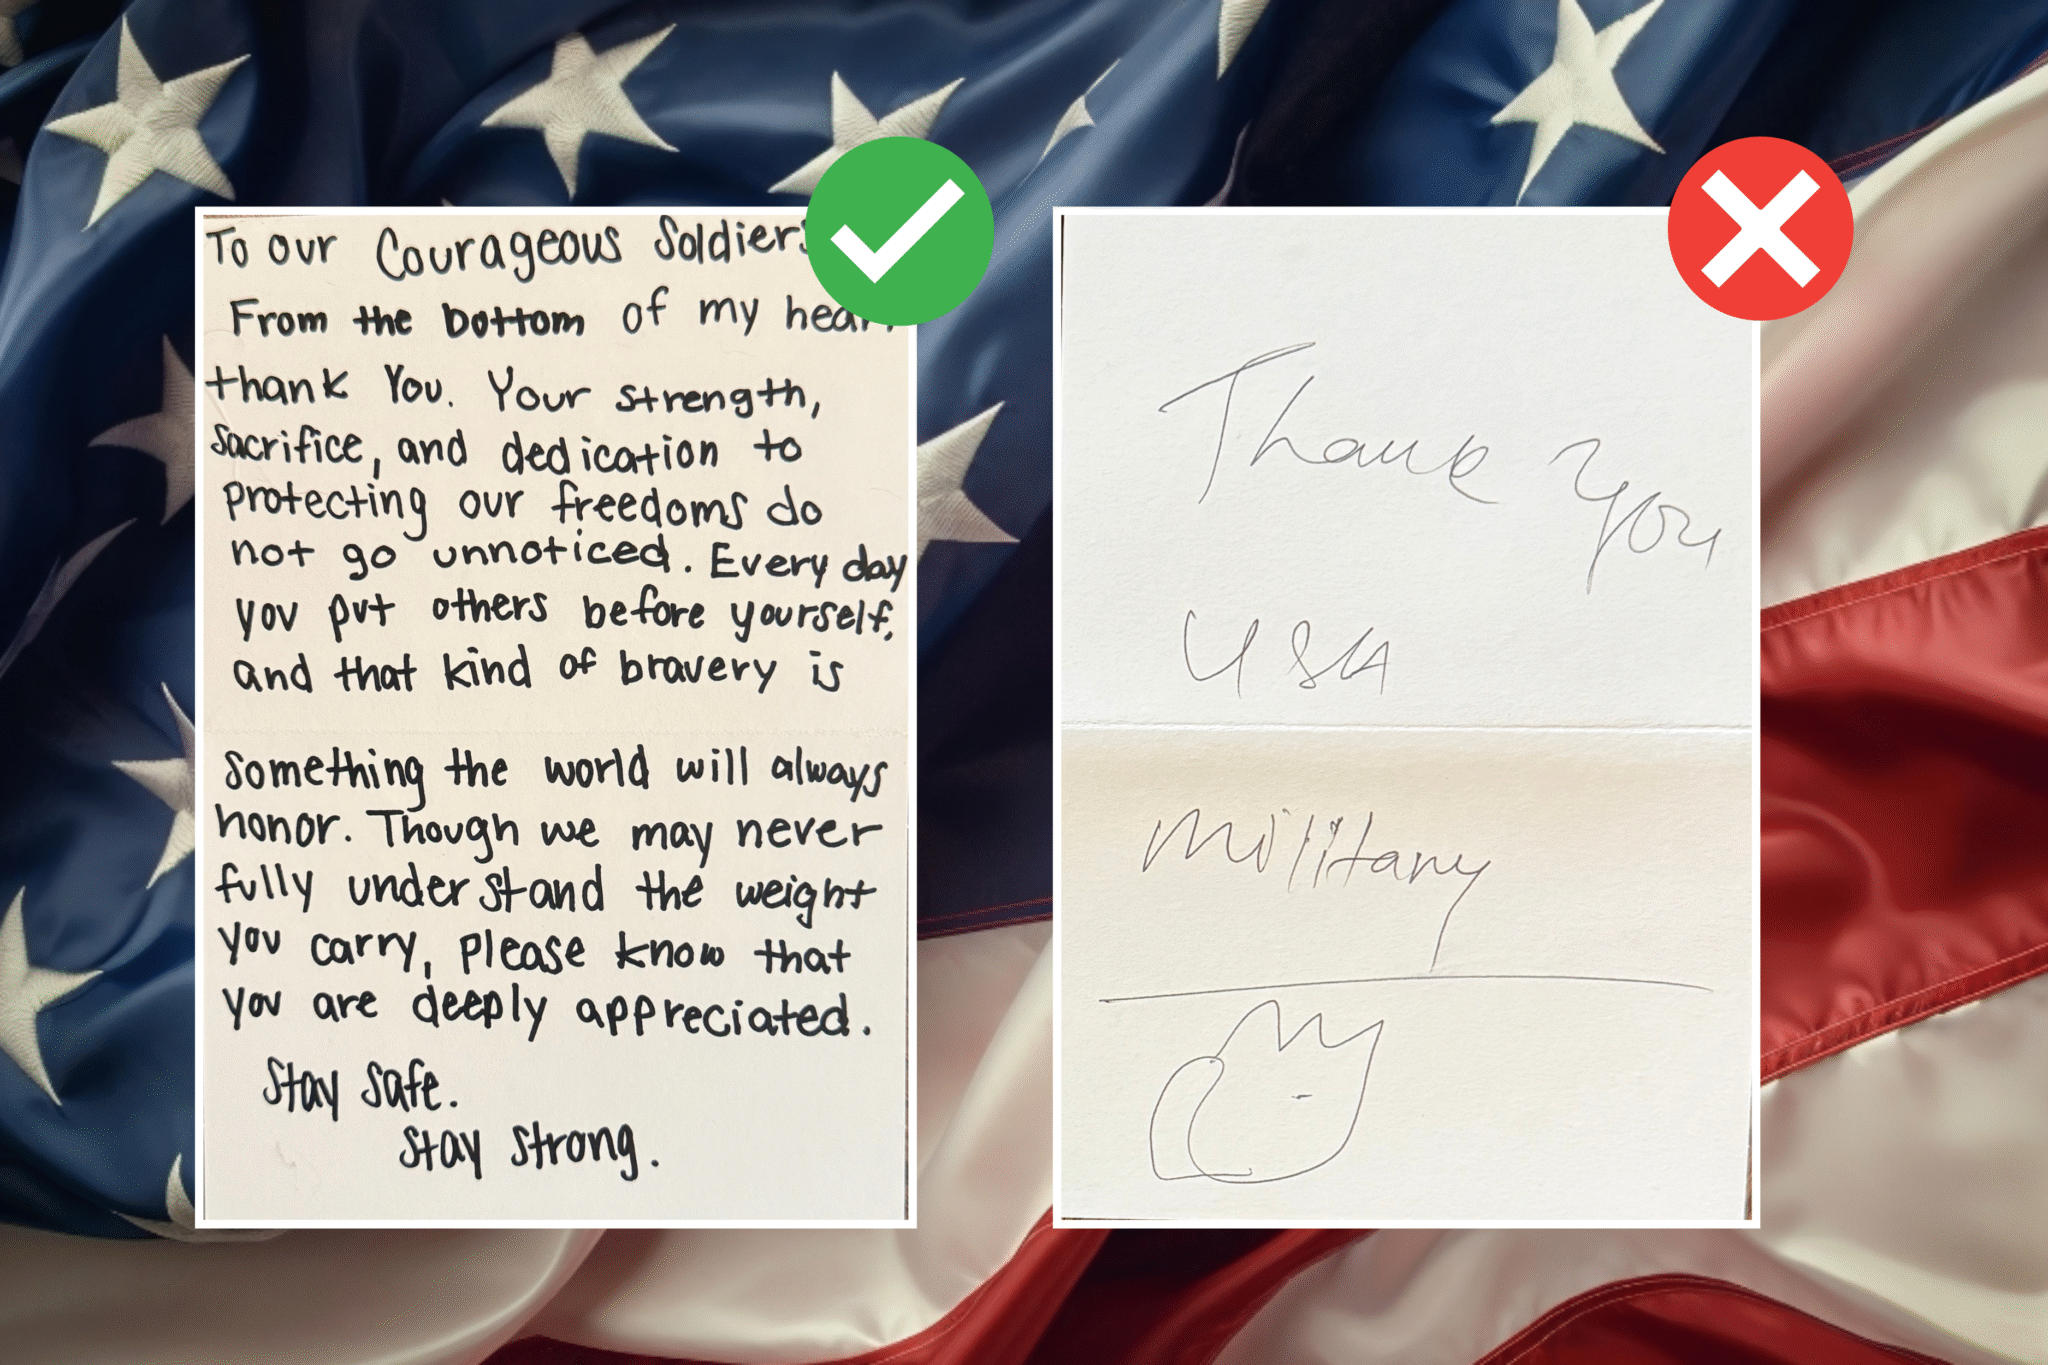 To our Courageous Soldiers
From the bottom of my heart
thank You. Your strength,
sacrifice, and dedication to
protecting our freedoms do
not go unnoticed. Every day
you put others before yourself,
and that kind of bravery is
something the world will always
honor. Though we may never
fully understand the weight
you carry, please know that
you are deeply appreciated.
Stay safe.
Stay strong.
Thank you
USA
Military